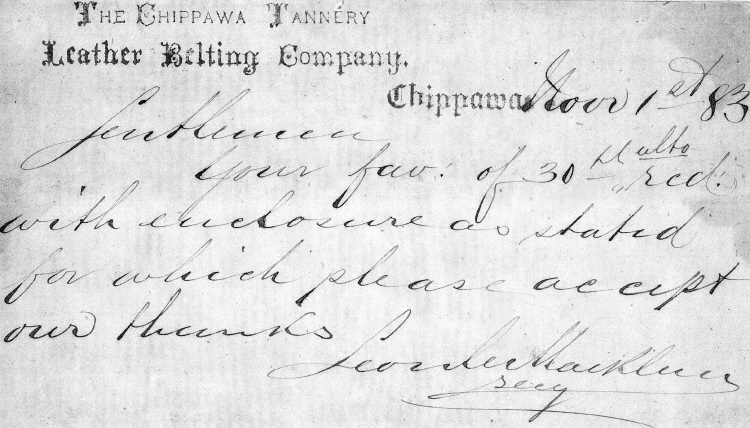 THE CHIPPAWA TANNERY
Leather Belting Company.
Chippawa Novr 1st 83
Gentlemen
Your fav. of 30th ulto recd.
with enclosure as stated
for which please accept
our thanks
Secy